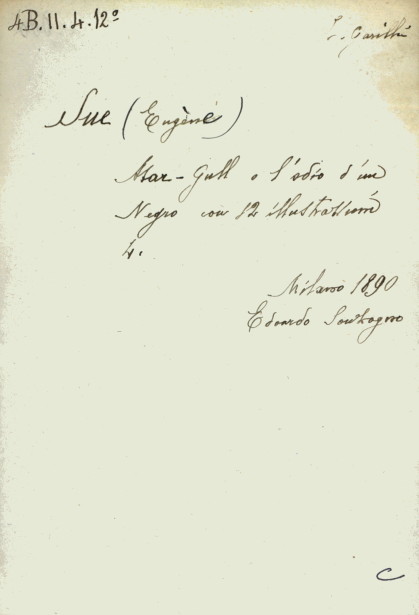 4B.II.4.12º
Sue (Eugène)
Atar-Gull o l'odio d'un
Negro con 12 illustrazioni
4.
Milano 1890
Edoardo Sonzogno
C